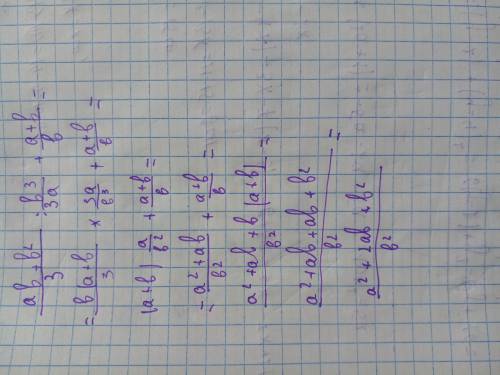 (ab + b²)/3 : b³/3a + (a+b)/b =
= b(a+b)/3 × 3a/b³ + (a+b)/b =
(a+b) a/b² + (a+b)/b =
= (a² + ab)/b² + (a+b)/b =
(a² + ab + b(a+b))/b² =
(a² + ab + ab + b²)/b² =
(a² + 2ab + b²)/b²